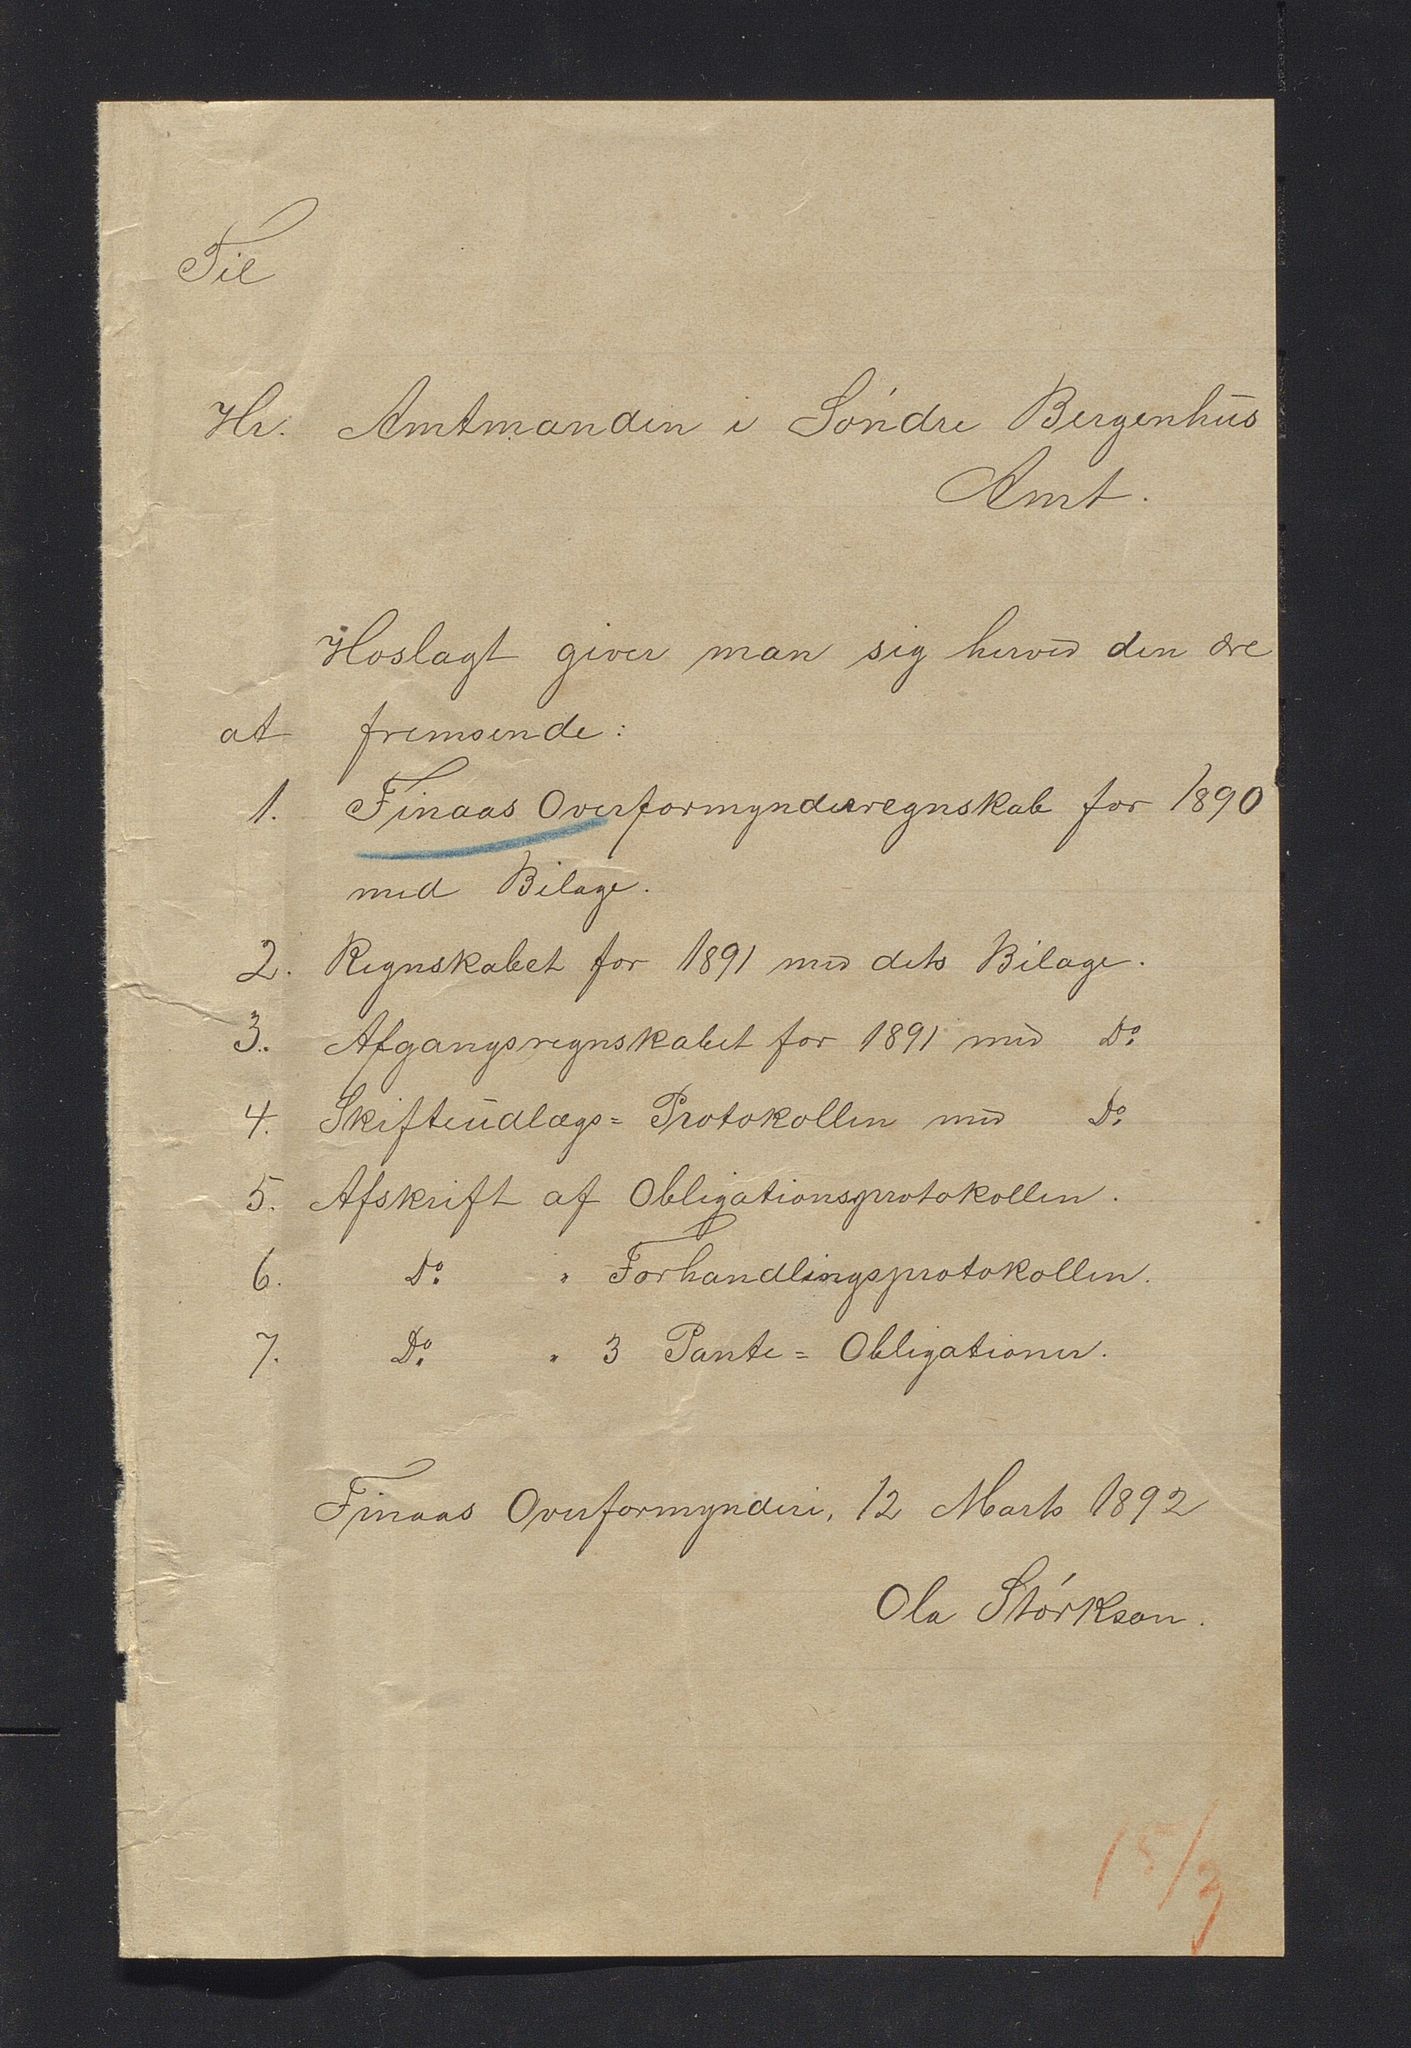 Til
Hr. Amtmanden i Søndre Bergenhus
Amt.
Hoslagt giver man sig herved den ære
at fremsende:
1. Finaas Overformynderregnskab for 1890
med Bilage.
2. Regnskabet for 1891 med dets Bilage.
3. Afgangsregnskabet for 1891 med Do
4. Skifteudlægs= Protokollen med Do
5. Afskrift af Obligationsprotokollen.
6. Do " Forhandlingsprotokollen.
7. Do " 3 Pante= Obligationer.
Finaas Overformynderi, 12 Marts 1892
Ola Størkson.
15/3